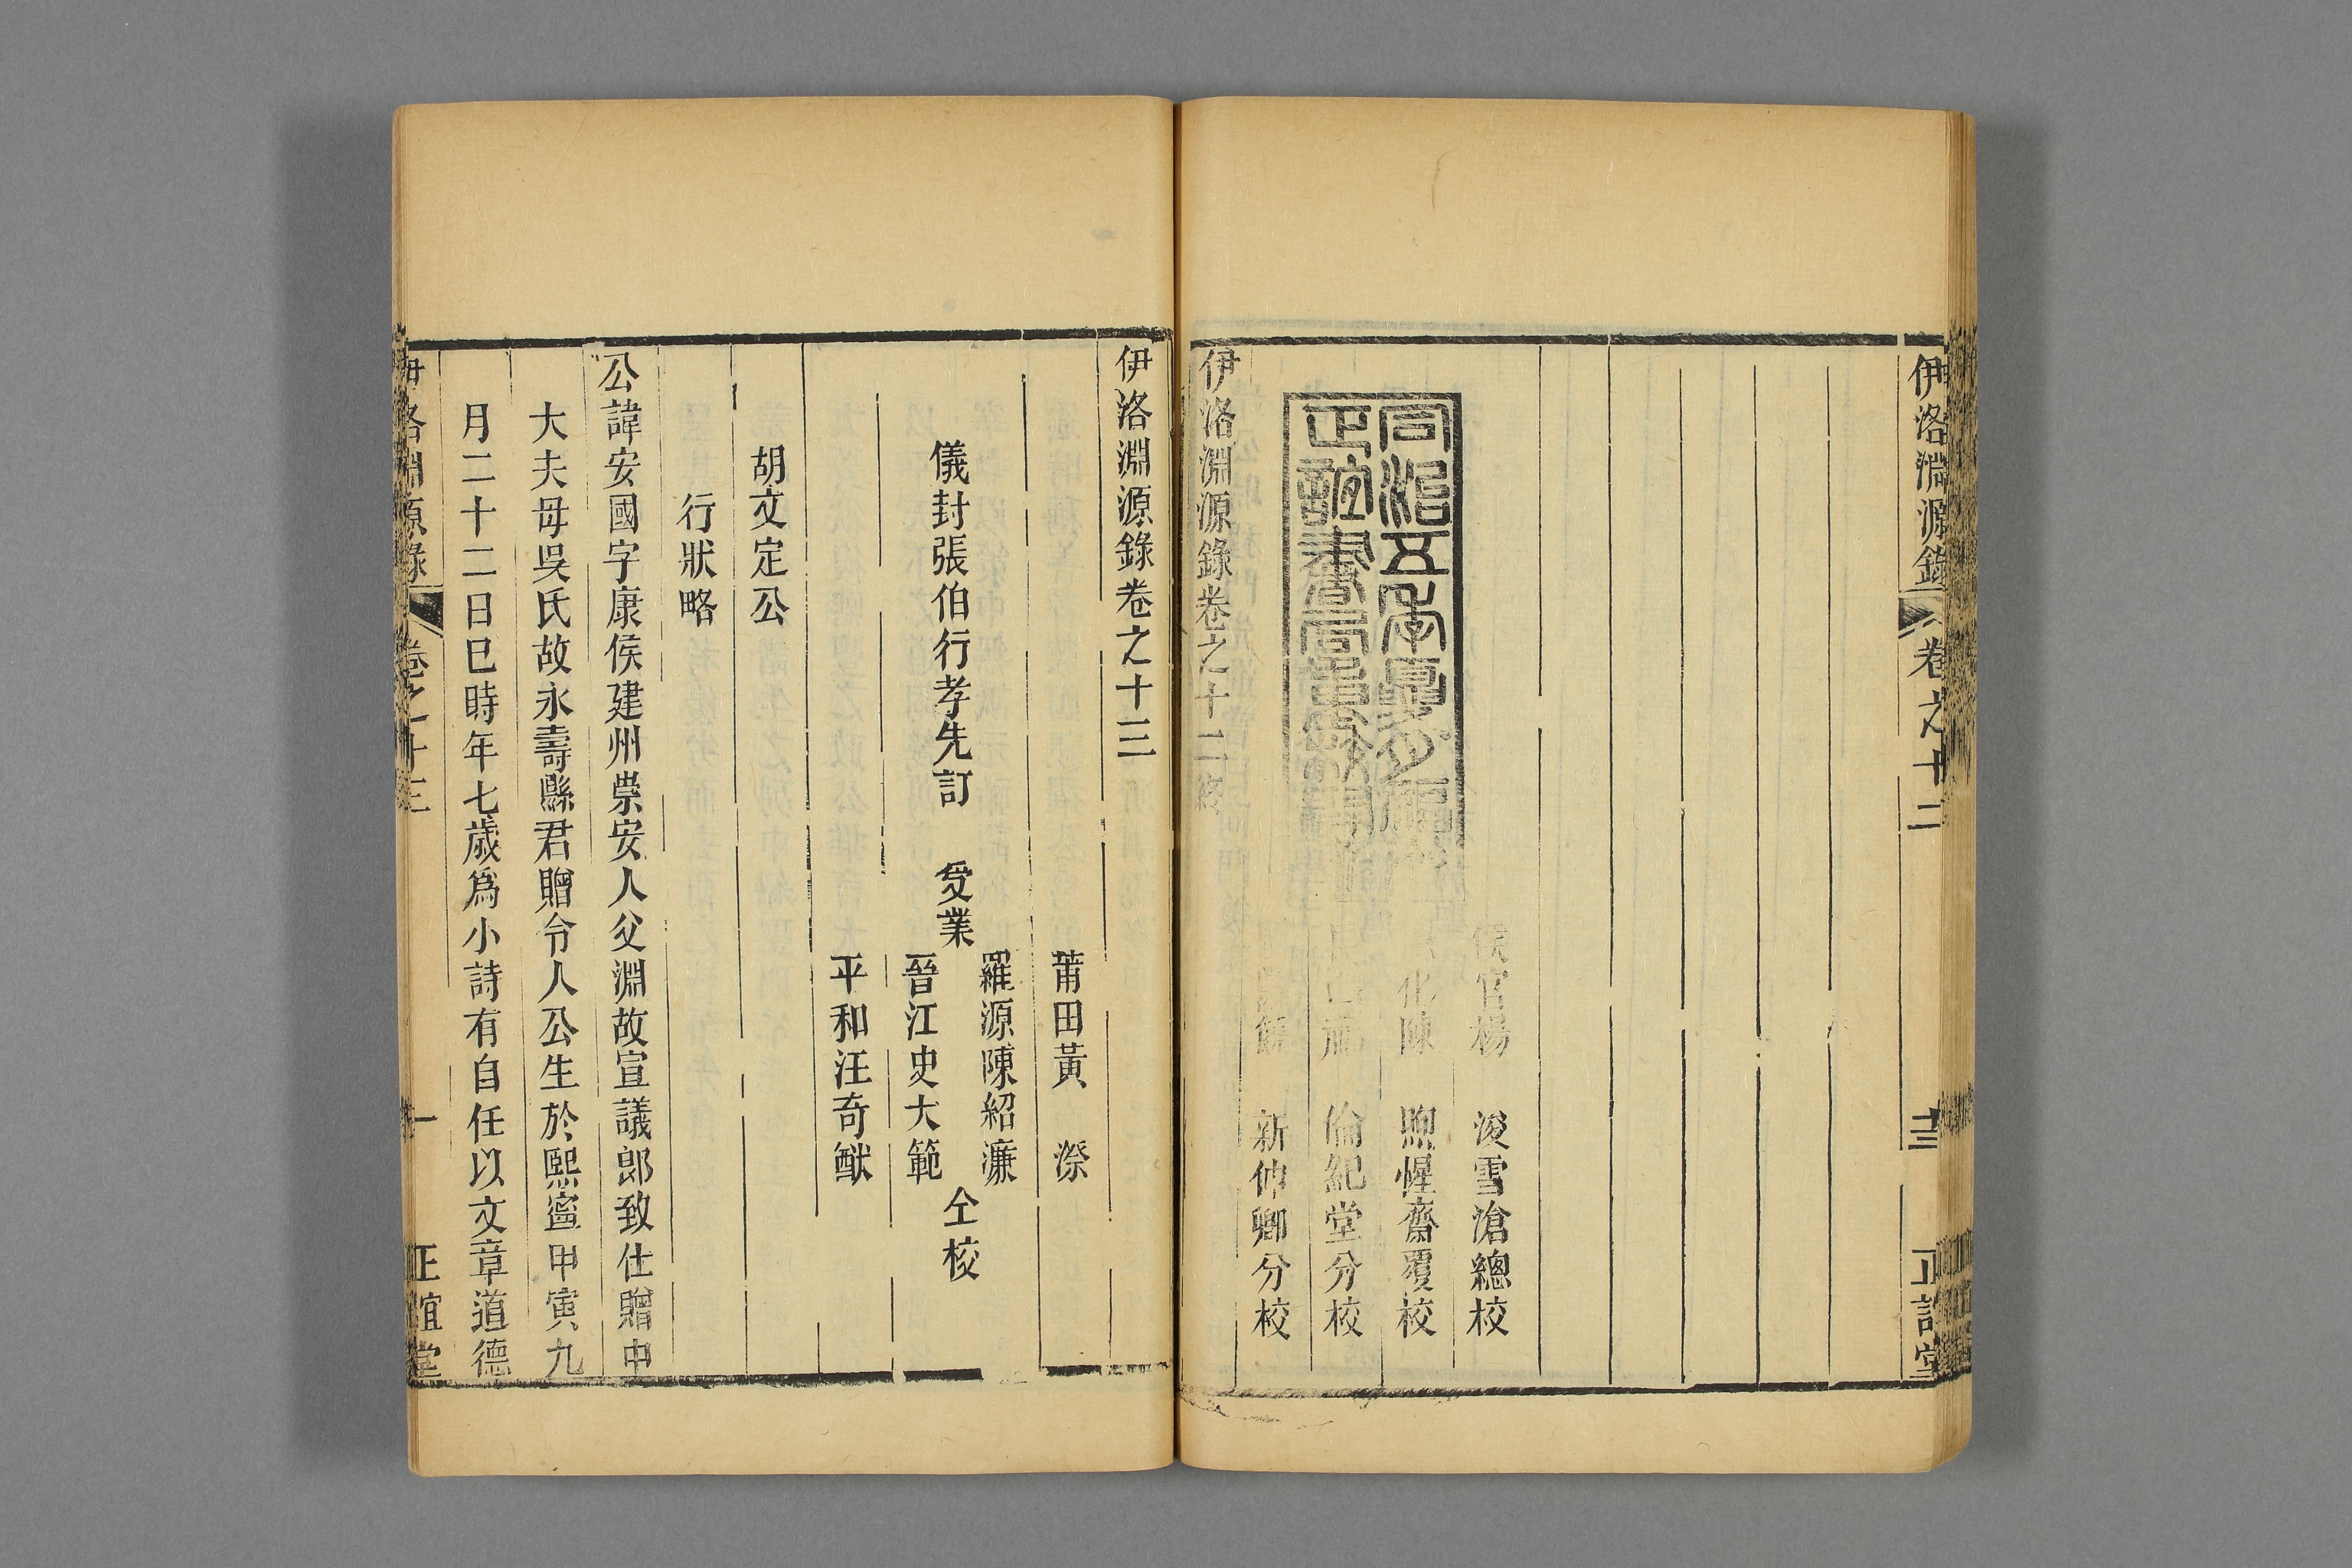 伊洛淵源錄 卷之十二 十三 正誼堂
同治五年夏月福
正誼書局重
侯官楊 浚雪滄總校
化陳 煦惺齋覆校
倫紀堂分校
新仲卿分校
伊洛淵源錄卷之十二終
伊洛淵源錄卷之十三
莆田黃 漈
羅源陳紹濂
儀封張伯行孝先訂 受業 仝校
晉江史大範
平和汪奇猷
胡文定公
行狀略
公諱安國字康侯建州崇安人父淵故宣議郎致仕贈中
大夫毋吳氏故永壽縣君贈令人公生於熙寧甲寅九
月二十二日巳時年七歲爲小詩有自任以文章道德
伊洛淵源錄 卷之十三 一 正誼堂